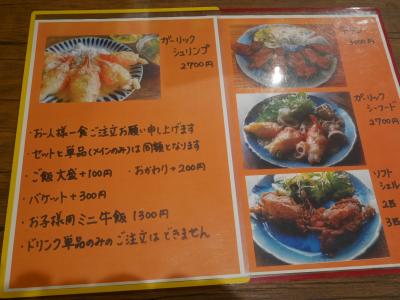 ガーリック
シュリンプ
2700円
・お一人様一食ご注文お願い申し上げます
・セットと単品(メインのみ)は同額となります
・ご飯大盛+100円 おかわり+200円
・バケット+300円
・お子様用ミニ牛飯 1300円
・ドリンク単品のみのご注文はできません
牛タン
ガーリック
シーフード
2700円
ソフト
シェル
2匹
3匹